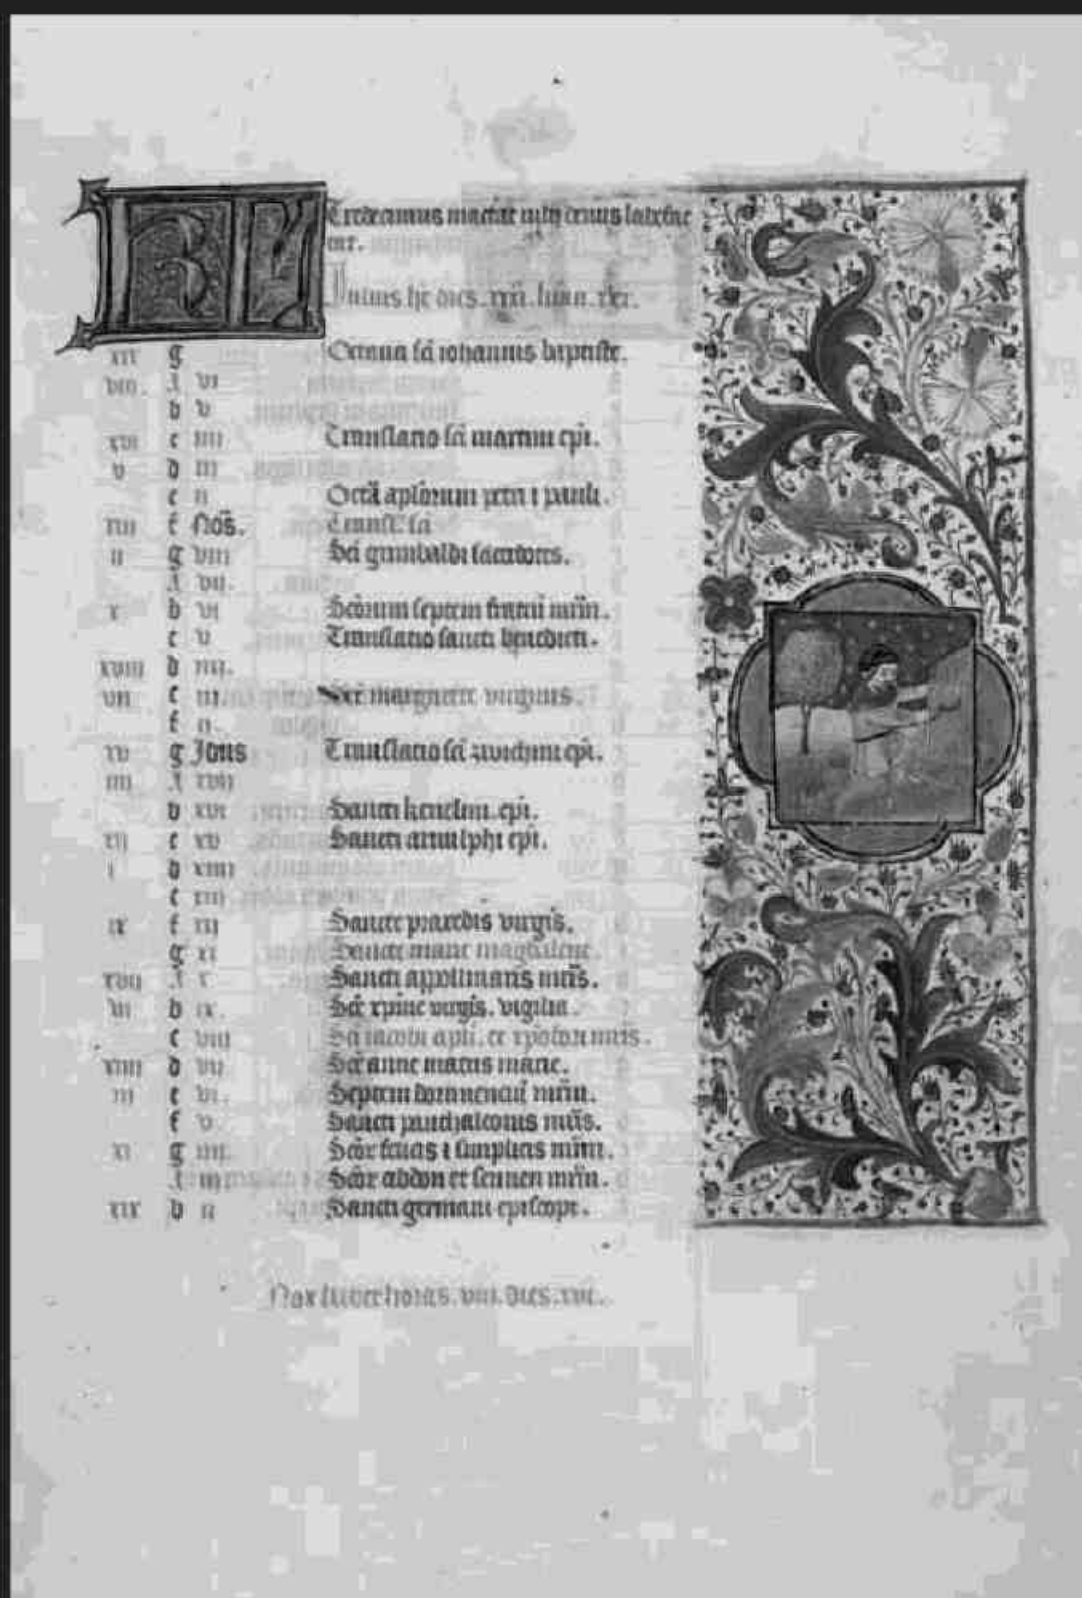 KL Tredecimus mactat iulij denus labefac
at.
Julius hēt dies. xxxi. luna. xxx.
xix g Octaua sc̄i iohannis baptiste.
viii. A vi
b v
xvi c iiii Translatio sc̄i martini ep̄i.
v d iii
e ii Octā apl̄orum petri ⁊ pauli.
xiii f Nōs. Transl. sc̄i
ii g viii Sc̄i grimbaldi sacerdotis.
A vii.
x b vi Sc̄orum septem fratrū mr̄m.
c v Translatio sancti benedicti.
xviii d iiii.
vii e iii. Sc̄e margarete virginis.
f ii.
xv g Idus Translatio sc̄i swichini ep̄i.
iiii A xvii
b xvi Sancti kenelmi. ep̄i.
xii c xv Sancti arnulphi ep̄i.
i d xiiii
e xiii
ix f xii Sancte praxedis virgīs.
g xi Sancte marie magdalene.
xvii A x Sancti appollinaris mr̄is.
vi b ix. Sc̄e xp̄ine virgīs. vigilia.
c viii Sc̄i iacobi apl̄i. et xp̄ofori mr̄is.
xiiii d vii Sc̄e anne matris marie.
iii e vi. Septem dormienciū mr̄m.
f v Sancti panthaleonis mr̄is.
xi g iiii. Sc̄or felicis ⁊ simplicis mr̄m.
A iii Sc̄or abdon et sennen mr̄m.
xix b ii Sancti germani episcopi.
Nox habet horas. viii. dies. xvi.